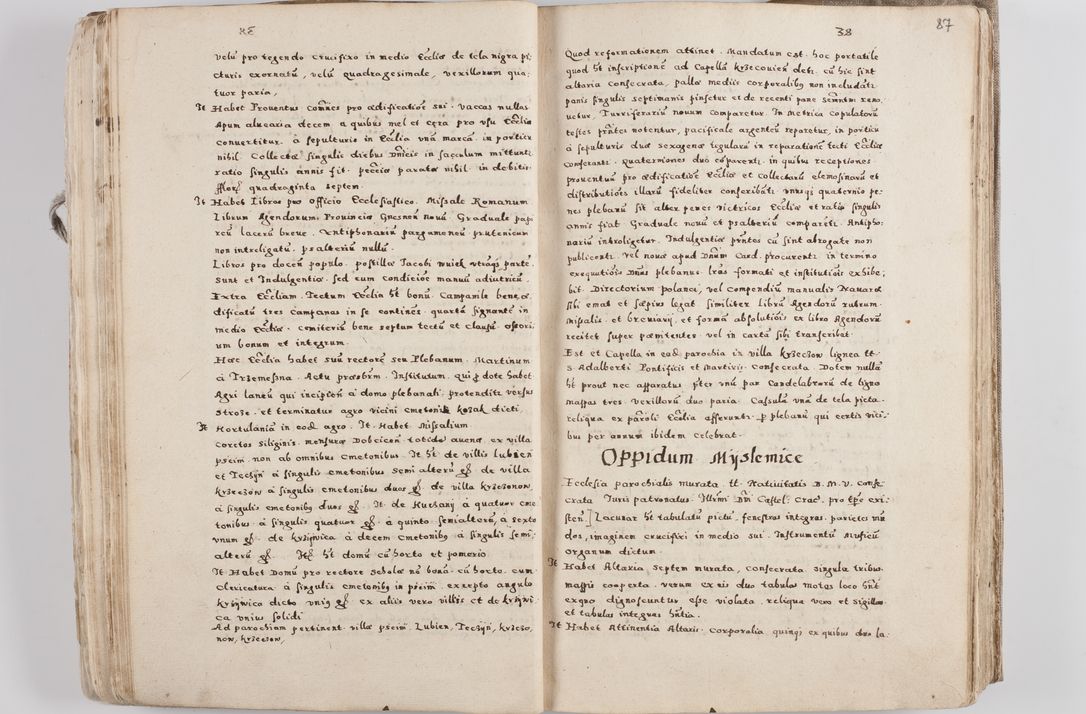 38
velū pro tegendo crucifixo in medio Eccliæ de tela nigra pi
cturis exornatū, velū quadragesimale, vexillorum qua:
tuor paria,
It Habet Proventus comnes pro ædificatiōe sui. vaccas nullas
Apum alvearia decem a quibus mel et cera pro usu Eccliæ
convertitur. à sepulturis in Ecclia unā marcā. in porticu
nihil. Collectæ singulis diebus Dnicis in sacculum mittunt
ratio singulis annis fit. peccia parata nihil. in debitis
flor quadraginta septem.
It Habet Libros pro officio Ecclesiastico. Missale Romanum
Librum Agendorum Provinciæ Gnesnen novū. Graduale papi
reū lacerū breve. Antiphonariū pargameneū prutenicum
non introligatū, psalteriū nullū.
Libros pro docen populo. postillæ Jacobi wuiek utraqȝ parte.
sunt et Indulgentiæ. sed cum condicioē manuū adiutriciū.
Extra Eccliam. Tectum Eccliæ ht bonū. Campanile bene æ:
dificatū tres campanas in se continēs. quartā signantē in
medio Eccliæ. cemiteriū bene septum tectū et clausū. ostori:
um bonum et integrum.
Hæc Ecclia habet suū rectorē seu Plebanum. Martinum
à Trzemesna. Actu præsbrm. Institutum. qui p dote habet
Agri laneū qui incipien à domo plebanali. protenditr versus
Strose. et terminatur agro vicini cmetonis kozak dicti.
It Hortulaniā in eod agro. It. Habet Missalium
coretos siliginis. mensuræ Dobcicen totide avenæ. ex villa
pscim. non ab omnibus Cmetonibus. It ht de villis lubien
et Teczyn à singulis cmetonibus semi alterū gs. de villa
krzeczow à singulis cmetonibus duos gs. de villa krzeczonow.
à singulis cmetonibȝ duos gs. It. de Huczany à quatuor cme
tonibus. à singulis quatuor gs. à quinto semialterū, à sexto
unum gs. de krzywica à decem cmetonibȝ à singulis semi:
alterū gs. It ht domū cū horto et pomerio.
It Habet Domū pro rectore scholæ nō bonā. cū horto. cum
clericatura à singulis cmetonibȝ in pscim. excepto angulo
krzywica dicto unū gs. ex aliis vero villis et de krzywi
ca unius solidi.
Ad parochiam pertinent. villæ pscim. Lubien, Teczyn, krzeczo,
now, krzeczow,
38
87
Quod reformationem attinet. Mandatum est. hoc portatile
quod ht inscriptionē ad Capellā krzeczovien deti. cū hic sint
altaria consecrata, pallæ mediis corporalibȝ non includātr
panis singulis septimanis pinsetur et de recenti pane Scmtum reno,
vetur, Turriferariū novum comparetur. In Metrica copulatorū
testes pntes notentur, pacificale argenteū reparetur, in porticu
à sepulturis duæ sexagenæ regulariter in reparationē tecti Eccliæ
conferantr. quaterniones duo cōparentr. in quibus receptiones
proventuū pro ædificatiōe Eccliæ et collectarū elemosinarū et
distributiōis illarū fideliter conscribātr. unusqȝ quaternio pe,
nes plebanū sit alter penes victricos Eccliæ et ratio singulis
annis fiat. Graduale novū et psalteriū comparetr. Antipho:
nariū introligetur. Indulgentiæ pntes cū sint abrogatæ non
publicentr. vel novæ apud Dnūm Card. procurentr in termino
exequutiōis Dnus plebanus. lras formati et institutiōis exhibe;
bit. Directorium polanci, vel compendiū manualis Navaræ
sibi emat et sæpius legat similiter librū Agendorū rubrum.
missalis. et breviarij. et formā absolutiōis ex libro Agendorū
recitet super pœnitentes. vel in cartā sibi transcribat.
Est et Capella in eod parochia in villa krzeczow lignea tt.
S. Adalberti Pontificis et Martiris. consecrata. Dotem nullā
ht prout nec apparatus. pter unū par candelabrorū de ligno
mappas tres. vexillorū duo paria. Casulā unā de tela picta.
reliqua ex parōli Ecclia afferuntr. p plebanū qui certis vici:
bus per annum ibidem celebrat.
Oppidum Myslemice
Ecclesia parochialis murata. tt. Nativitatis B. M. V. conse
crata. Juris patronatus. Illrmi Dni Castel: Crac. pro tpe exi:
sten] Lacunar ht tabulatū pictū, fenestras integras. parietes mū
dos, imaginem crucifixi in medio sui. Instrumentū Musicū
organum dictum.
It Habet Altaria septem murata, consecrata singula tribus.
mappis cooperta. verum ex eis duo tabulas motas loco hnt
exquo dignoscuntur esse violata. reliqua vero et sigillos
et tabulas integras hntia.
It Habet Attinentia Altaris. Corporalia quinqȝ ex quibus duo la: